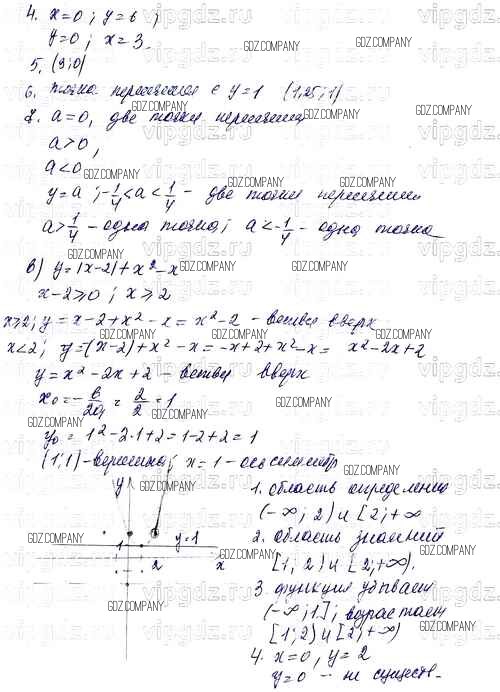 4. x=0; y=6;
y=0; x=3.
5. (3;0)
6. точка пересечения с y=1 (1,25;1)
7. a=0, две точки пересечения
a>0,
a<0
y=a; -1/4<a<1/4 - две точки пересечения
a>1/4 - одна точка; a<-1/4 - одна точка
в) y=|x-2|+x²-x
x-2≥0; x≥2
x≥2; y=x-2+x²-x=x²-2 - ветви вверх
x<2; y=-(x-2)+x²-x=-x+2+x²-x= x²-2x+2
y=x²-2x+2 - ветви вверх
x₀=-в/2a=2/2=1
y₀=1²-2·1+2=1-2+2=1
(1;1) - вершина; x=1 - ось симметр
y
1
y=1
2
x
1. область определения
(-∞; 2) и [2;+∞
2. область значений
[1; 2) и [2;+∞).
3. функция убывает
(-∞;1]; возрастает
[1;2) и [2;+∞)
4. x=0, y=2
y=0 - не существ.
vipgdz.ru
GDZ.COMPANY